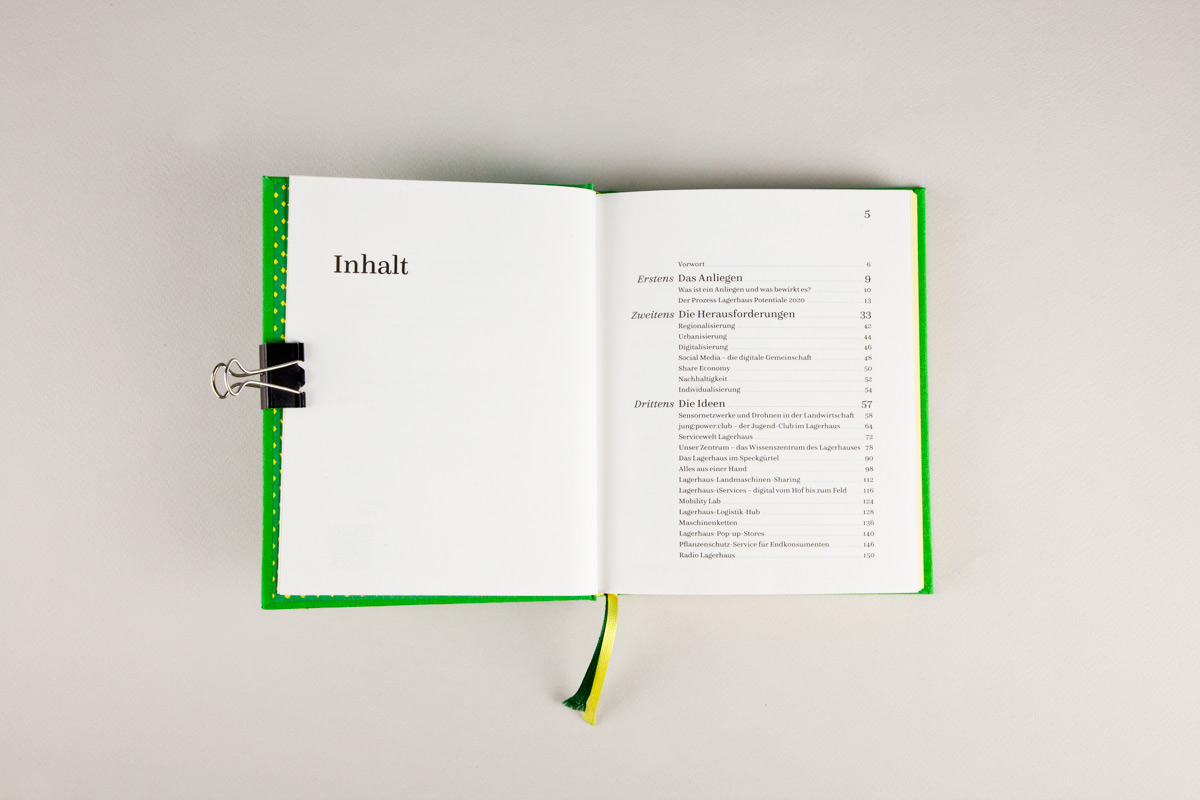 Inhalt
5
Vorwort 6
Erstens Das Anliegen 9
Was ist ein Anliegen und was bewirkt es? 10
Der Prozess Lagerhaus Potentiale 2020 13
Zweitens Die Herausforderungen 33
Regionalisierung 42
Urbanisierung 44
Digitalisierung 46
Social Media – die digitale Gemeinschaft 48
Share Economy 50
Nachhaltigkeit 52
Individualisierung 54
Drittens Die Ideen 57
Sensornetzwerke und Drohnen in der Landwirtschaft 58
jung:power:club – der Jugend-Club im Lagerhaus 64
Servicewelt Lagerhaus 72
Unser Zentrum – das Wissenszentrum des Lagerhauses 78
Das Lagerhaus im Speckgürtel 90
Alles aus einer Hand 98
Lagerhaus-Landmaschinen-Sharing 112
Lagerhaus-iServices – digital vom Hof bis zum Feld 116
Mobility Lab 124
Lagerhaus-Logistik-Hub 128
Maschinenketten 136
Lagerhaus-Pop-up-Stores 140
Pflanzenschutz-Service für Endkonsumenten 146
Radio Lagerhaus 150